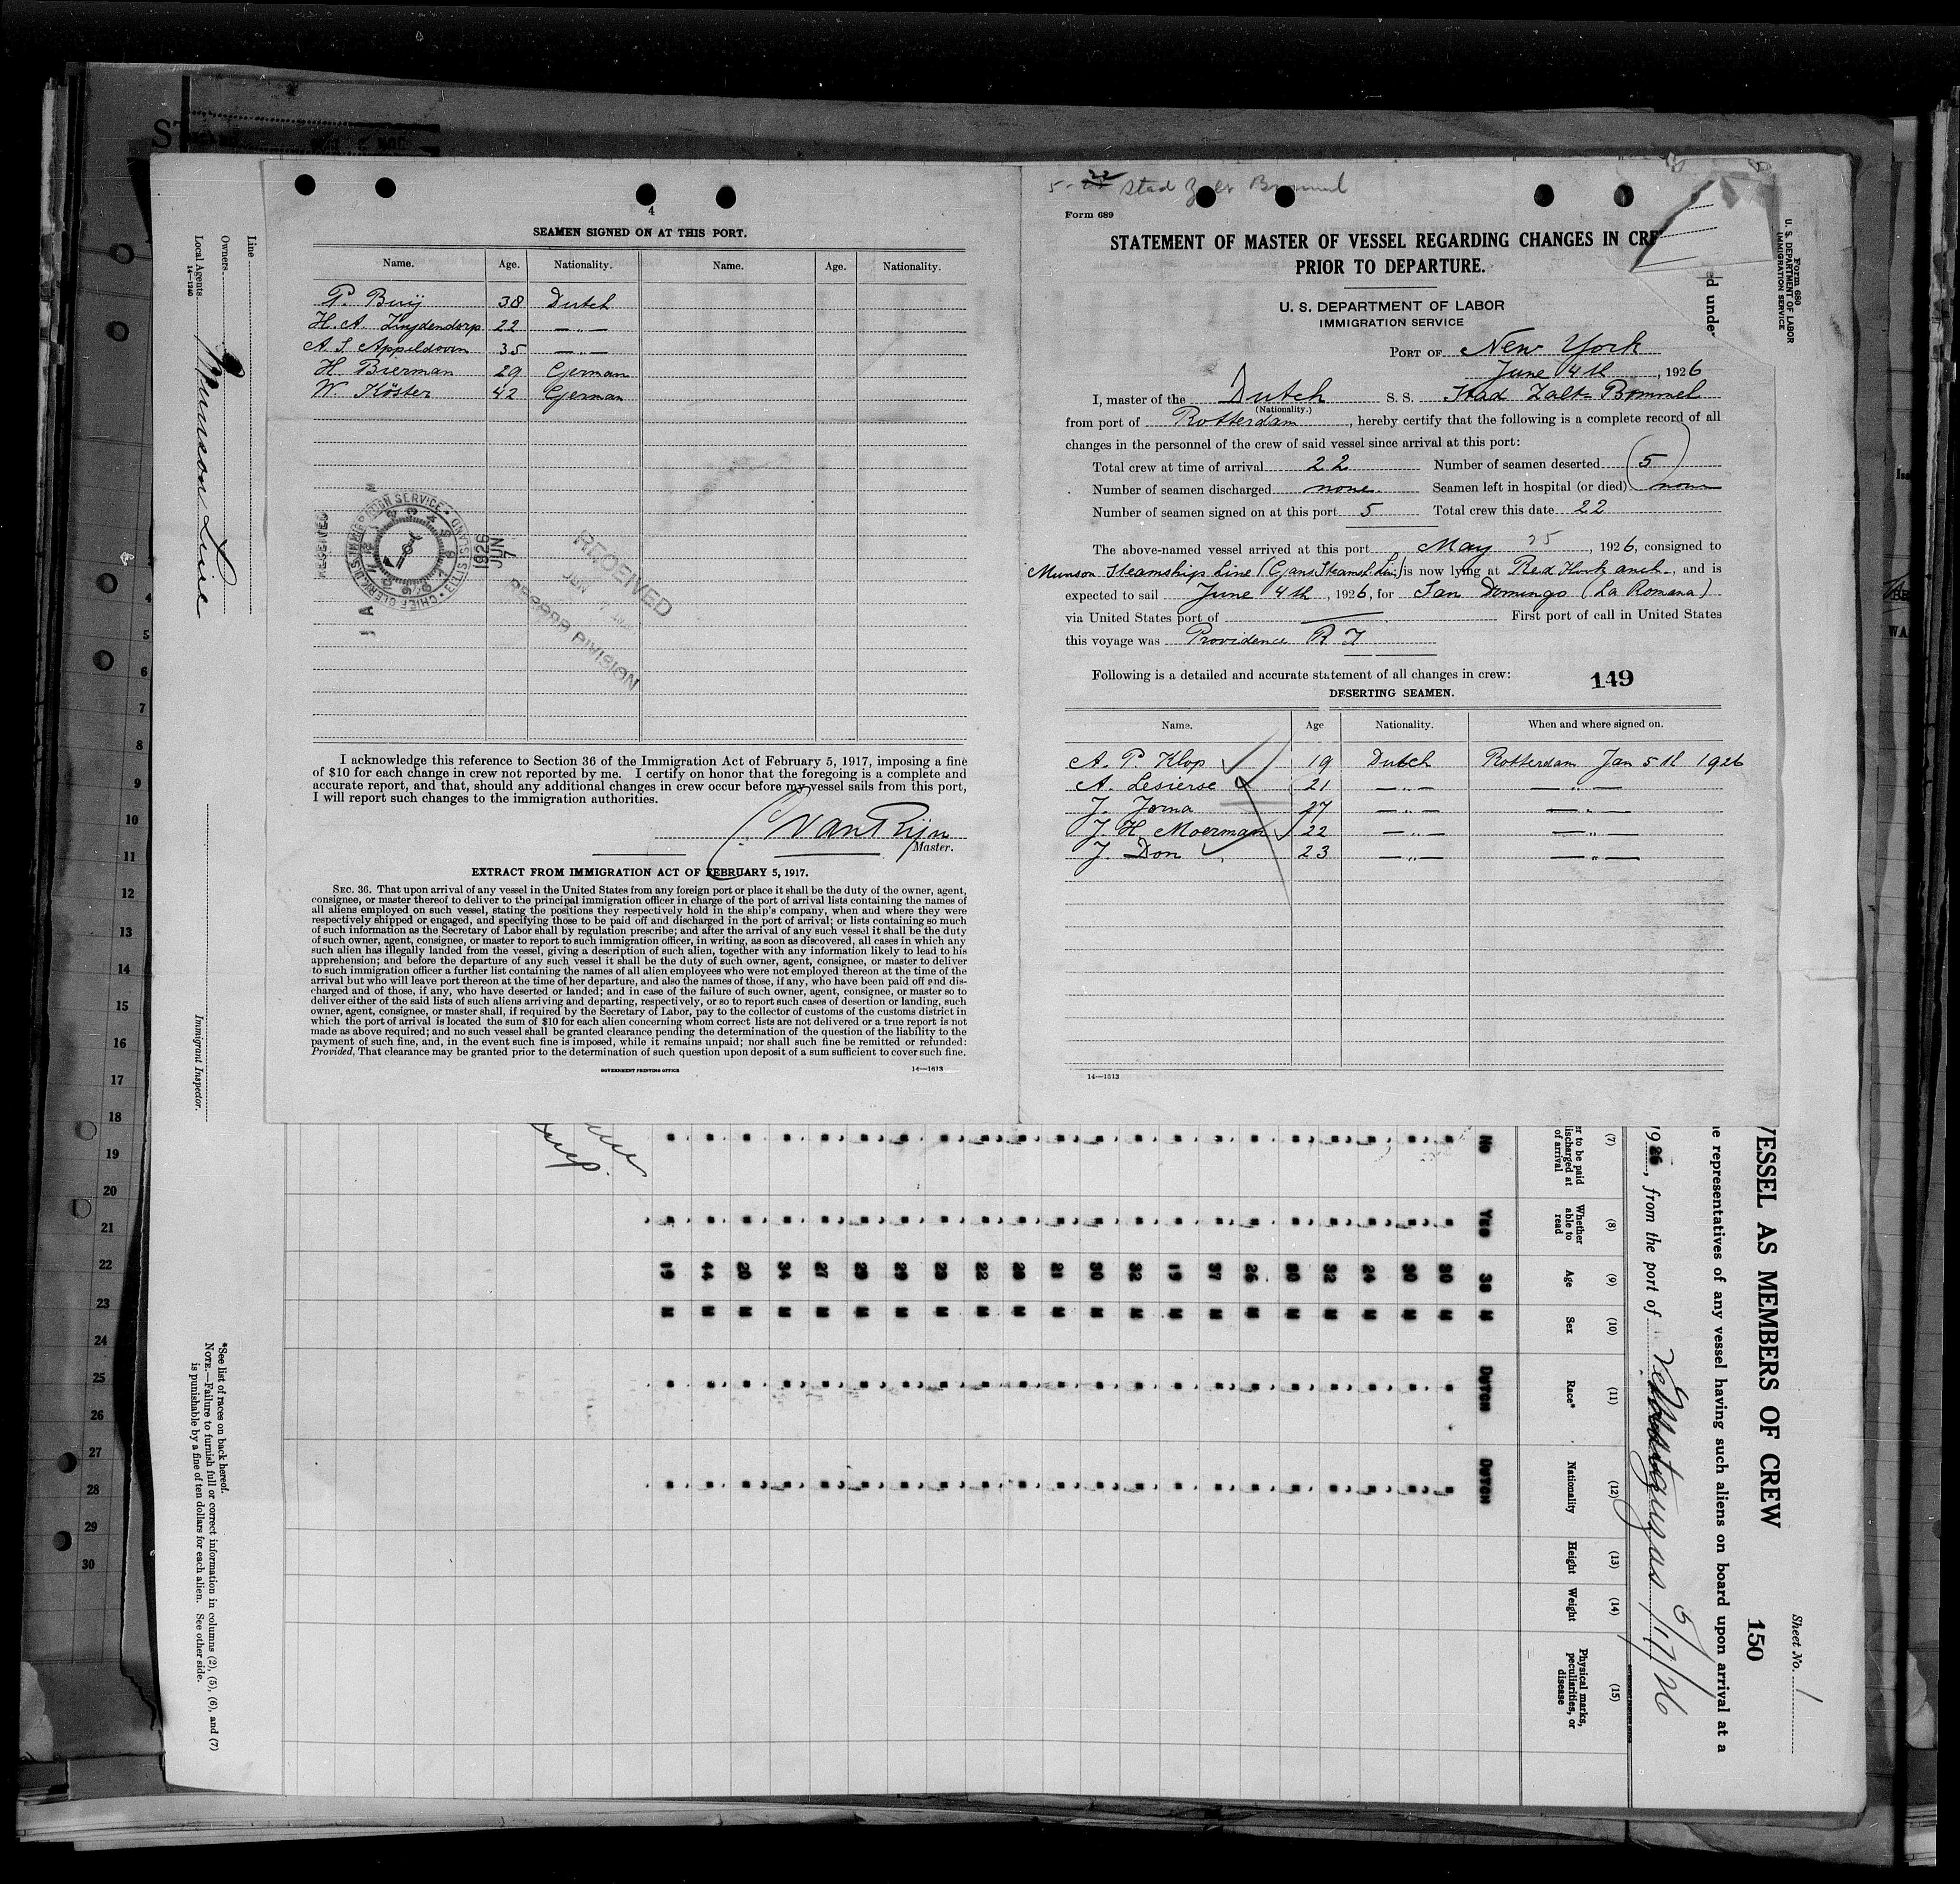 4
SEAMEN SIGNED ON AT THIS PORT.
Name. Age. Nationality. Name. Age. Nationality.
P. Buij 38 Dutch
H. A. Zuydendorp 22 — „ —
A S Appeldoorn 35 — „ —
H. Bierman 29 German
W. Köster 42 German
RECEIVED
CHIEF CLERK U.S. IMMIGRATION SERVICE ELLIS ISLAND
1926 JUN 7
RECEIVED
JUN 7
RECORD DIVISION
I acknowledge this reference to Section 36 of the Immigration Act of February 5, 1917, imposing a fine
of $10 for each change in crew not reported by me. I certify on honor that the foregoing is a complete and
accurate report, and that, should any additional changes in crew occur before my vessel sails from this port,
I will report such changes to the immigration authorities.
C. van Rijn
Master.
EXTRACT FROM IMMIGRATION ACT OF FEBRUARY 5, 1917.
SEC. 36. That upon arrival of any vessel in the United States from any foreign port or place it shall be the duty of the owner, agent,
consignee, or master thereof to deliver to the principal immigration officer in charge of the port of arrival lists containing the names of
all aliens employed on such vessel, stating the positions they respectively hold in the ship's company, when and where they were
respectively shipped or engaged, and specifying those to be paid off and discharged in the port of arrival; or lists containing so much
of such information as the Secretary of Labor shall by regulation prescribe; and after the arrival of any such vessel it shall be the duty
of such owner, agent, consignee, or master to report to such immigration officer, in writing, as soon as discovered, all cases in which any
such alien has illegally landed from the vessel, giving a description of such alien, together with any information likely to lead to his
apprehension; and before the departure of any such vessel it shall be the duty of such owner, agent, consignee, or master to deliver
to such immigration officer a further list containing the names of all alien employees who were not employed thereon at the time of the
arrival but who will leave port thereon at the time of her departure, and also the names of those, if any, who have been paid off and dis-
charged and of those, if any, who have deserted or landed; and in case of the failure of such owner, agent, consignee, or master so to
deliver either of the said lists of such aliens arriving and departing, respectively, or so to report such cases of desertion or landing, such
owner, agent, consignee, or master shall, if required by the Secretary of Labor, pay to the collector of customs of the customs district in
which the port of arrival is located the sum of $10 for each alien concerning whom correct lists are not delivered or a true report is not
made as above required; and no such vessel shall be granted clearance pending the determination of the question of the liability to the
payment of such fine, and, in the event such fine is imposed, while it remains unpaid; nor shall such fine be remitted or refunded:
Provided, That clearance may be granted prior to the determination of such question upon deposit of a sum sufficient to cover such fine.
GOVERNMENT PRINTING OFFICE 14—1613
Form 689
STATEMENT OF MASTER OF VESSEL REGARDING CHANGES IN CRE
PRIOR TO DEPARTURE.
U. S. DEPARTMENT OF LABOR
IMMIGRATION SERVICE
PORT OF New York
June 4th, 1926
I, master of the Dutch S. S. Stad Zalt-Bommel
(Nationality.)
from port of Rotterdam, hereby certify that the following is a complete record of all
changes in the personnel of the crew of said vessel since arrival at this port:
Total crew at time of arrival 22 Number of seamen deserted 5
Number of seamen discharged none. Seamen left in hospital (or died) none
Number of seamen signed on at this port 5 Total crew this date 22
The above-named vessel arrived at this port May 25, 1926, consigned to
Munson Steamships Line is now lying at Red Hook anch., and is
expected to sail June 4th, 1926, for San Domingo (La Romana)
via United States port of First port of call in United States
this voyage was Providence R I
Following is a detailed and accurate statement of all changes in crew:
149
DESERTING SEAMEN.
Name. Age Nationality. When and where signed on.
A. P. Klop 19 Dutch Rotterdam Jan 5th 1926
A. Lesierse 21 — „ — — „ —
J. Jorna 27 — „ — — „ —
J. H. Moerman 22 — „ — — „ —
J. Don 23 — „ — — „ —
14—1613
Form 680
U. S. DEPARTMENT OF LABOR
IMMIGRATION SERVICE
Sheet No. 1
VESSEL AS MEMBERS OF CREW 150
representatives of any vessel having such aliens on board upon arrival at a
1926, from the port of 5/17/26
(7) (8) (9) (10) (11) (12) (13) (14) (15)
er to be paid
discharged at
of arrival
Whether
able to
read
Age
Sex
Race*
Nationality
Height
Weight
Physical marks,
peculiarities, or
disease
No Yes 38 M Dutch Dutch
30 M
30 M
24 M
32 M
30 M
26 M
37 M
19 M
32 M
30 M
21 M
28 M
22 M
23 M
29 M
29 M
27 M
34 M
20 M
44 M
19 M
Line
Owners
Local Agents Munson Line
14—1240
Immigrant Inspector.
*See list of races on back hereof.
NOTE.—Failure to furnish full or correct information in columns (2), (5), (6), and (7)
is punishable by a fine of ten dollars for each alien. See other side.
4
5
6
7
8
9
10
11
12
13
14
15
16
17
18
19
20
21
22
23
24
25
26
27
28
29
30